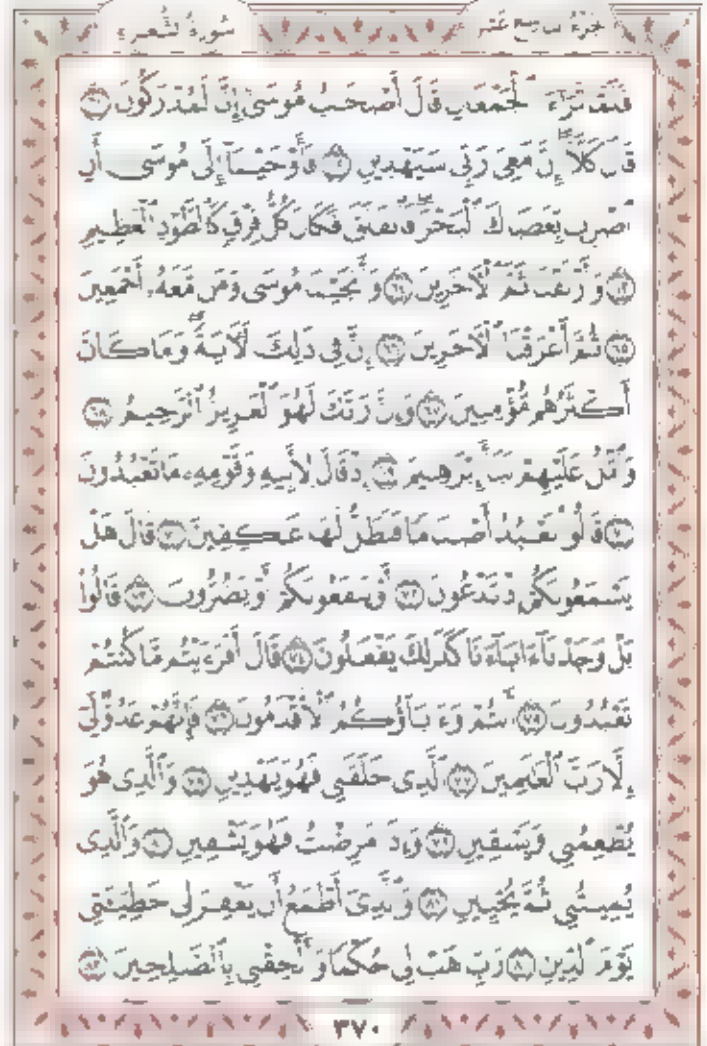 الجزء التاسع عشر سورة الشعراء
فَلَمَّا تَرَٰٓءَا ٱلْجَمْعَانِ قَالَ أَصْحَٰبُ مُوسَىٰٓ إِنَّا لَمُدْرَكُونَ ٦١
قَالَ كَلَّآ إِنَّ مَعِىَ رَبِّى سَيَهْدِينِ ٦٢ فَأَوْحَيْنَآ إِلَىٰ مُوسَىٰٓ أَنِ
ٱضْرِب بِّعَصَاكَ ٱلْبَحْرَ فَٱنفَلَقَ فَكَانَ كُلُّ فِرْقٍ كَٱلطَّوْدِ ٱلْعَظِيمِ
٦٣ وَأَزْلَفْنَا ثَمَّ ٱلْءَاخَرِينَ ٦٤ وَأَنجَيْنَا مُوسَىٰ وَمَن مَّعَهُۥٓ أَجْمَعِينَ
٦٥ ثُمَّ أَغْرَقْنَا ٱلْءَاخَرِينَ ٦٦ إِنَّ فِى ذَٰلِكَ لَءَايَةً وَمَا كَانَ
أَكْثَرُهُم مُّؤْمِنِينَ ٦٧ وَإِنَّ رَبَّكَ لَهُوَ ٱلْعَزِيزُ ٱلرَّحِيمُ ٦٨
وَٱتْلُ عَلَيْهِمْ نَبَأَ إِبْرَٰهِيمَ ٦٩ إِذْ قَالَ لِأَبِيهِ وَقَوْمِهِۦ مَا تَعْبُدُونَ
٧٠ قَالُوا۟ نَعْبُدُ أَصْنَامًا فَنَظَلُّ لَهَا عَٰكِفِينَ ٧١ قَالَ هَلْ
يَسْمَعُونَكُمْ إِذْ تَدْعُونَ ٧٢ أَوْ يَنفَعُونَكُمْ أَوْ يَضُرُّونَ ٧٣ قَالُوا۟
بَلْ وَجَدْنَآ ءَابَآءَنَا كَذَٰلِكَ يَفْعَلُونَ ٧٤ قَالَ أَفَرَءَيْتُم مَّا كُنتُمْ
تَعْبُدُونَ ٧٥ أَنتُمْ وَءَابَآؤُكُمُ ٱلْأَقْدَمُونَ ٧٦ فَإِنَّهُمْ عَدُوٌّ لِّىٓ
إِلَّا رَبَّ ٱلْعَٰلَمِينَ ٧٧ ٱلَّذِى خَلَقَنِى فَهُوَ يَهْدِينِ ٧٨ وَٱلَّذِى هُوَ
يُطْعِمُنِى وَيَسْقِينِ ٧٩ وَإِذَا مَرِضْتُ فَهُوَ يَشْفِينِ ٨٠ وَٱلَّذِى
يُمِيتُنِى ثُمَّ يُحْيِينِ ٨١ وَٱلَّذِىٓ أَطْمَعُ أَن يَغْفِرَ لِى خَطِيٓـَٔتِى
يَوْمَ ٱلدِّينِ ٨٢ رَبِّ هَبْ لِى حُكْمًا وَأَلْحِقْنِى بِٱلصَّٰلِحِينَ ٨٣
٣٧٠